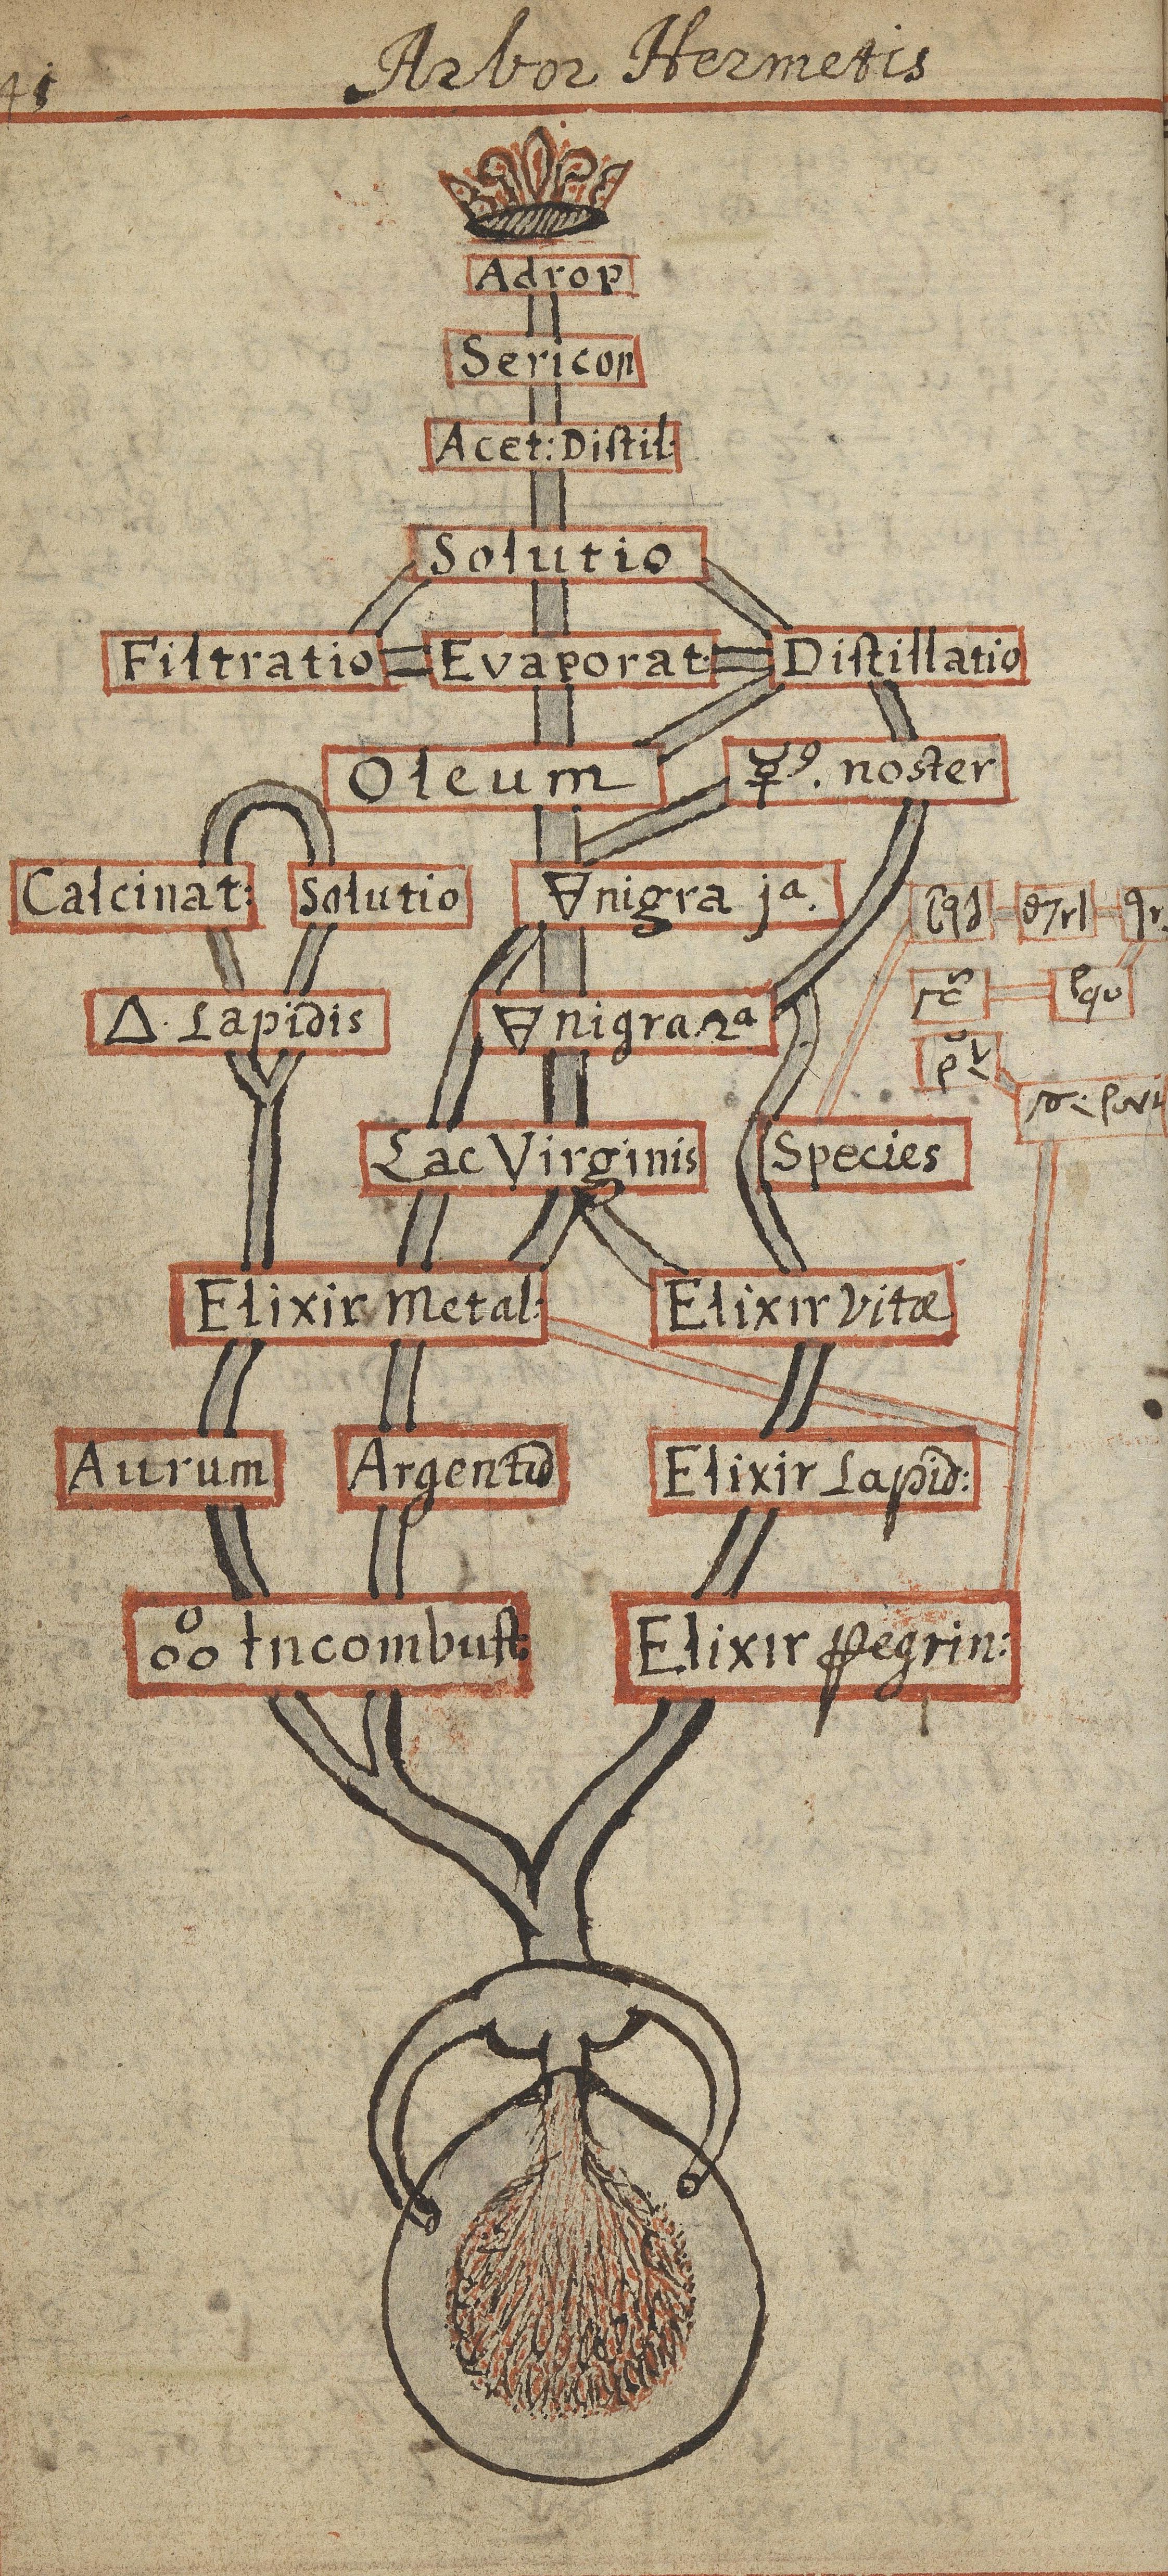 Arbor Hermetis
41
Adrop
Sericon
Acet: Distil:
Solutio
Filtratio Evaporat: Distillatio
Oleum ☿9. noster
Calcinat: Solutio 🜃nigra ja.
△. Lapidis 🜃nigra 2a
Lac Virginis Species
Elixir Metal: Elixir Vitæ
Aurum Argentū Elixir Lapid:
Incombust: Elixir